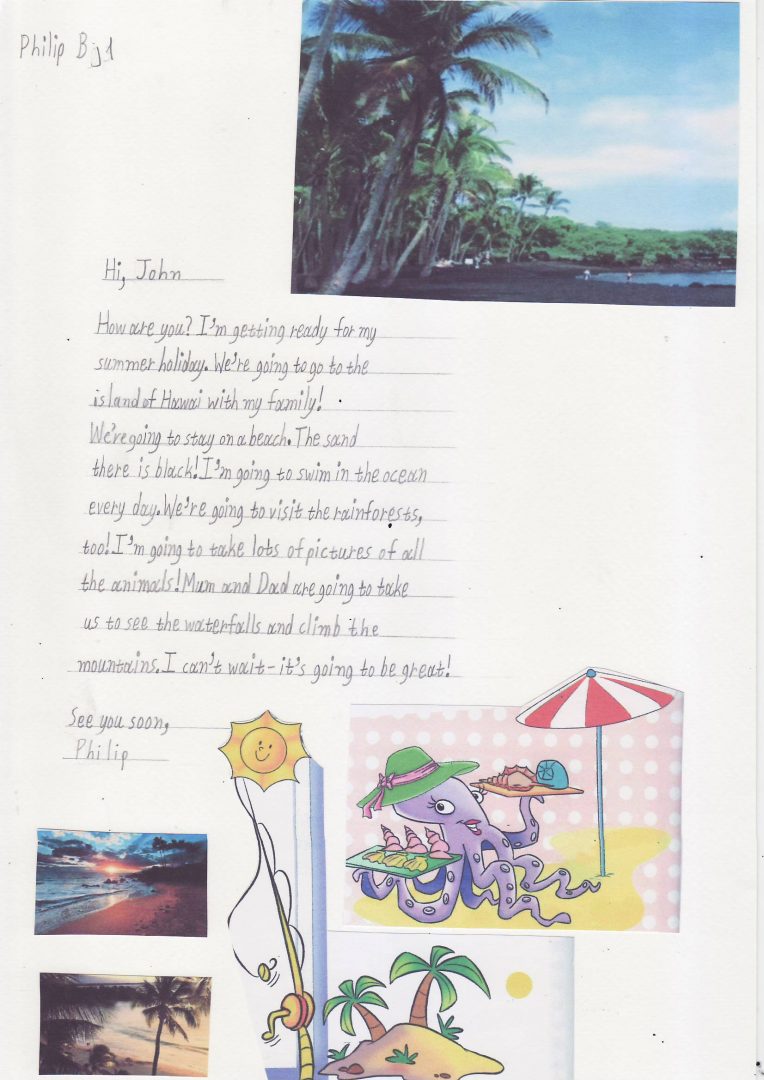 Philip Bj1
Hi, John
How are you? I'm getting ready for my
summer holiday. We're going to go to the
island of Hawai with my family!
We're going to stay on a beach. The sand
there is black! I'm going to swim in the ocean
every day. We're going to visit the rainforests,
too! I'm going to take lots of pictures of all
the animals! Mum and Dad are going to take
us to see the waterfalls and climb the
mountains. I can't wait - it's going to be great!
See you soon,
Philip